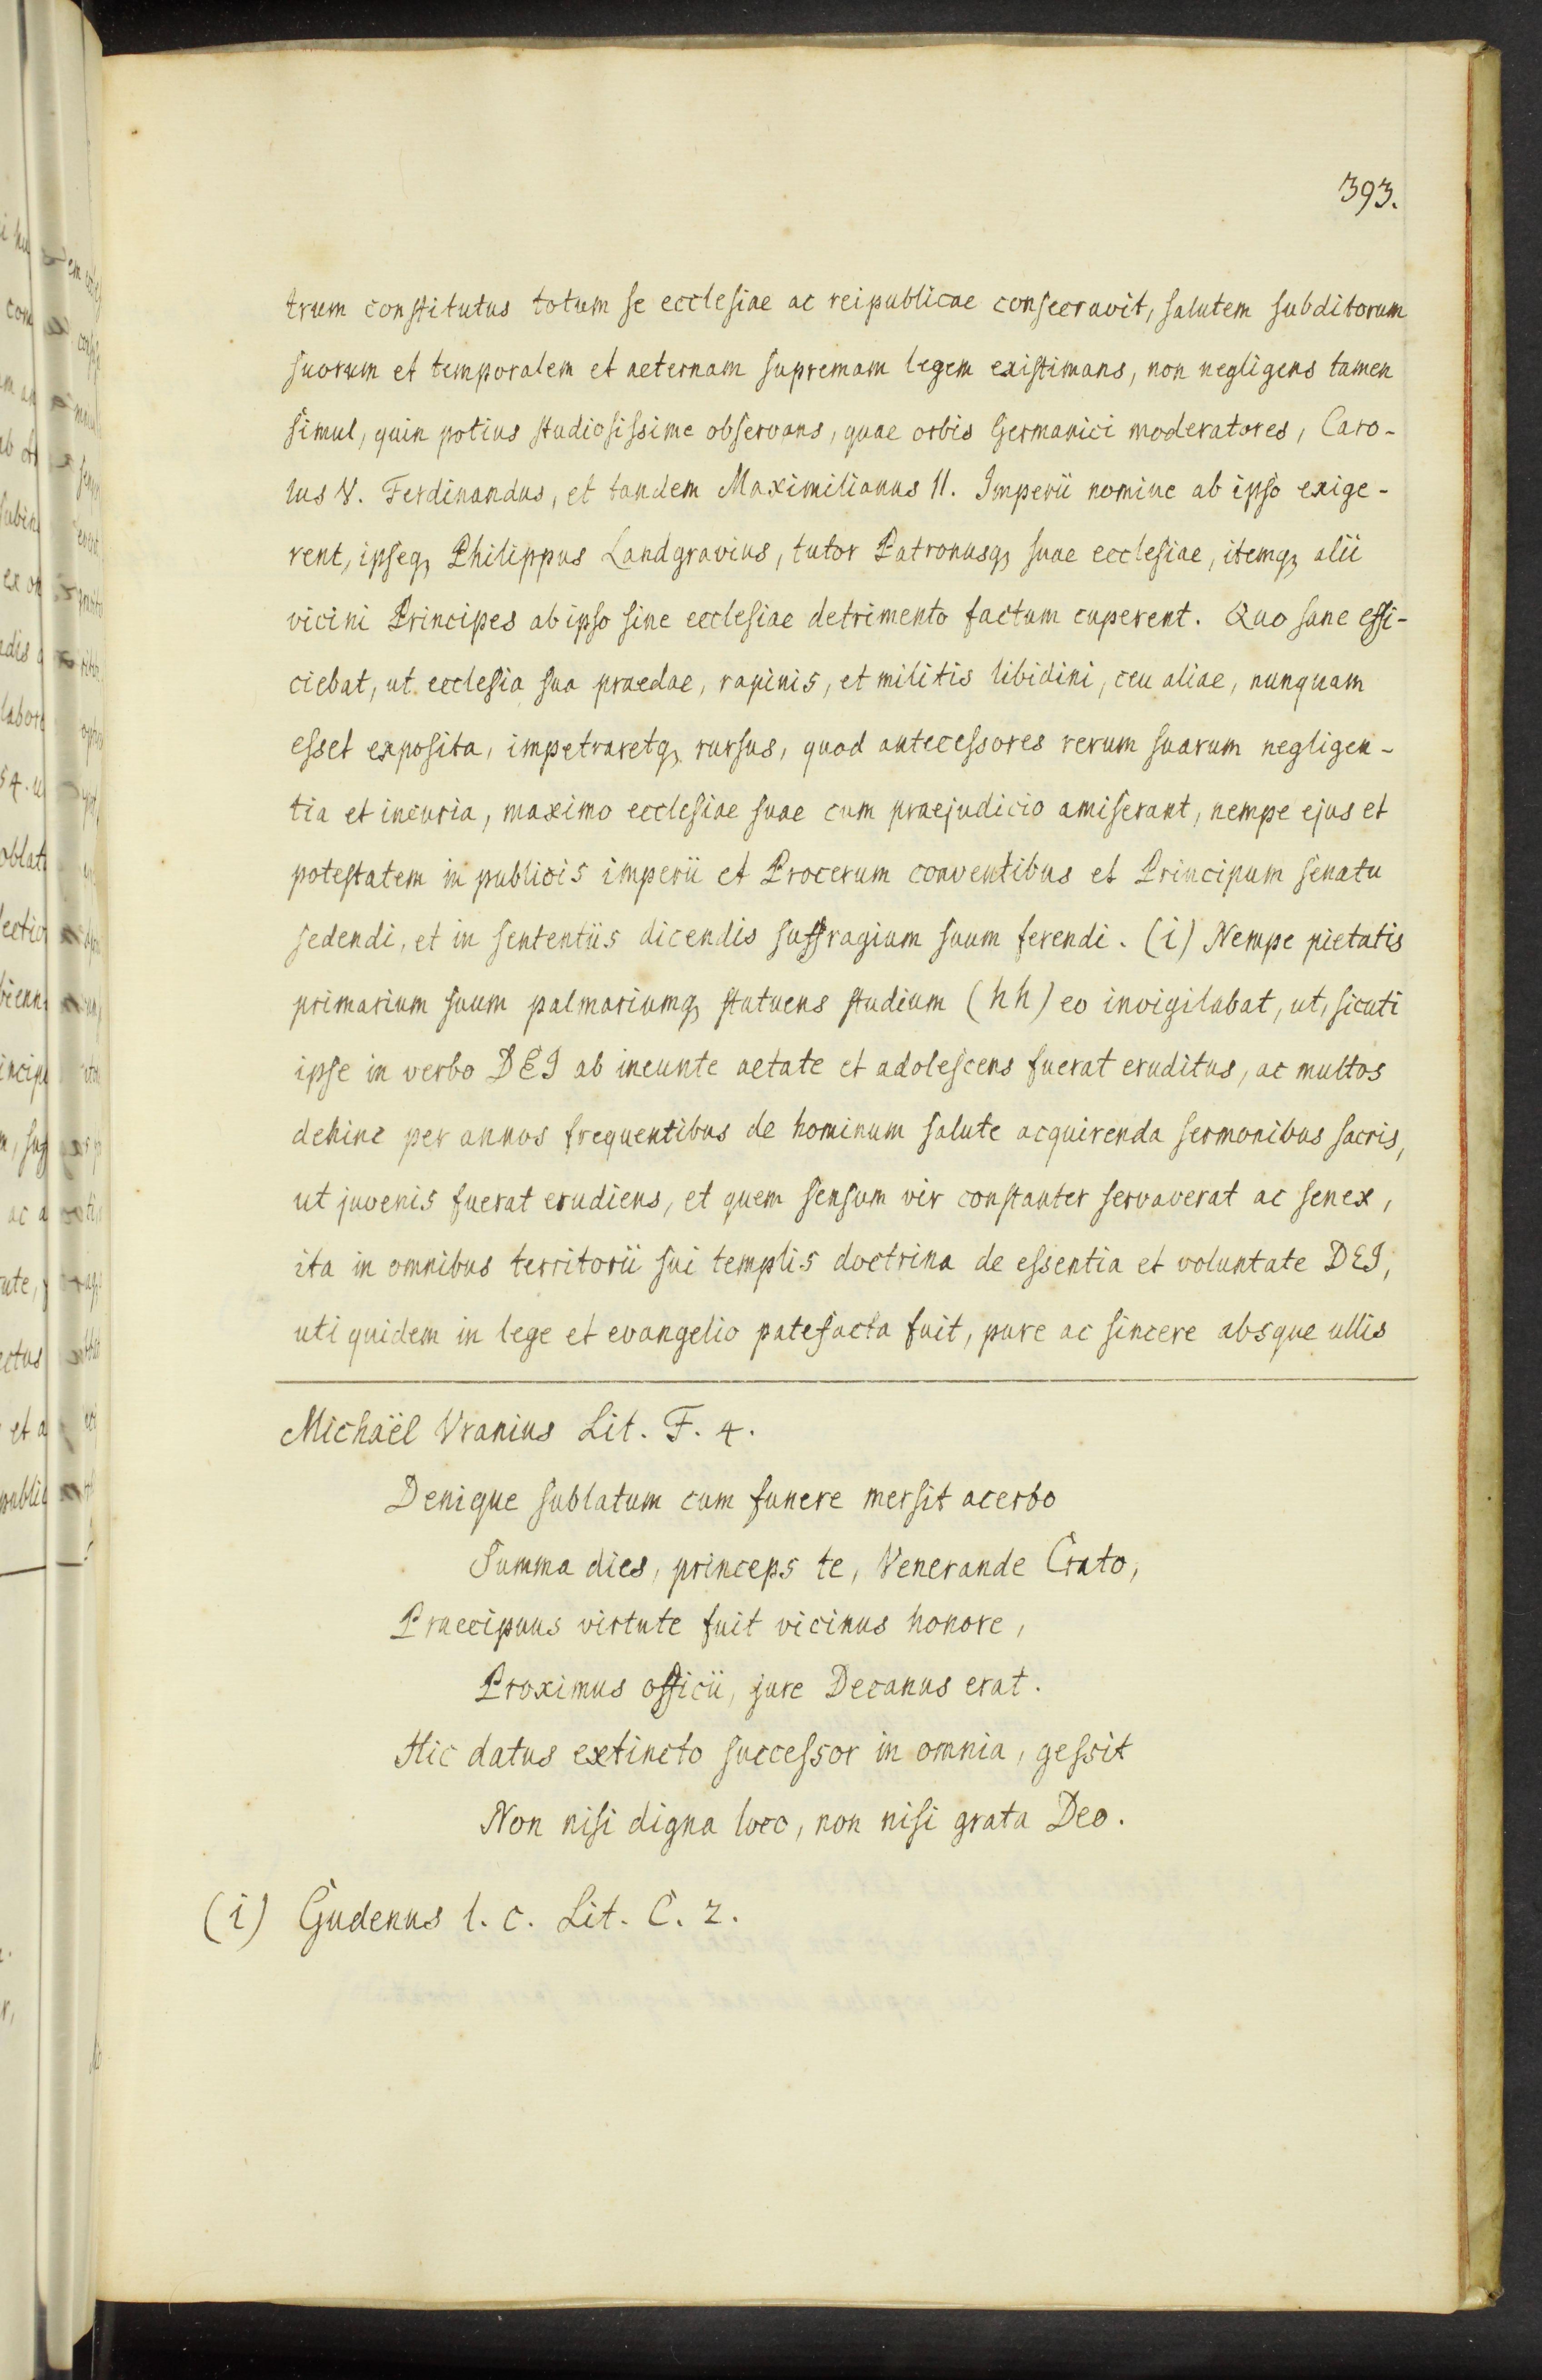 393.
trum constitutus totum se ecclesiae ac reipublicae consecravit, salutem subditorum
suorum et temporalem et aeternam supremam legem existimans, non negligens tamen
simul, quin potius studiosissime observans, quae orbis Germanici moderatores, Caro-
lus V. Ferdinandus, et tandem Maximilianus II. Imperii nomine ab ipso exige-
rent, ipseq, Philippus Landgravius, tutor Patronusq, suae ecclesiae, itemq, alii
vicini Principes ab ipso sine ecclesiae detrimento factum cuperent. Quo sane effi-
ciebat, ut ecclesia sua praedae, rapinis, et militis libidini, ceu aliae, nunquam
esset exposita, impetraretq, rursus, quod antecessores rerum suarum negligen-
tia et incuria, maximo ecclesiae suae cum praejudicio amiserant, nempe ejus et
potestatem in publicis imperii et Procerum conventibus et Principum senatu
sedendi, et in sententiis dicendis suffragium suum ferendi. (i) Nempe pietatis
primarium suum palmariumq, statuens studium (hh) eo invigilabat, ut, sicuti
ipse in verbo DEI ab ineunte aetate et adolescens fuerat eruditus, ac multos
dehinc per annos frequentibus de hominum salute acquirenda sermonibus sacris,
ut juvenis fuerat erudiens, et quem sensum vir constanter servaverat ac senex,
ita in omnibus territorii sui templis doctrina de essentia et voluntate DEI,
uti quidem in lege et evangelio patefacta fuit, pure ac sincere absque ullis
Michaël Vranius Lit. F. 4.
Denique sublatum cum funere mersit acerbo
Summa dies, princeps te, Venerande Crato,
Praecipuus virtute fuit vicinus honore,
Proximus officii, jure Decanus erat.
Hic datus extincto successor in omnia, gessit
Non nisi digna loco, non nisi grata Deo.
(i) Gudenus l. c. Lit. C. 2.